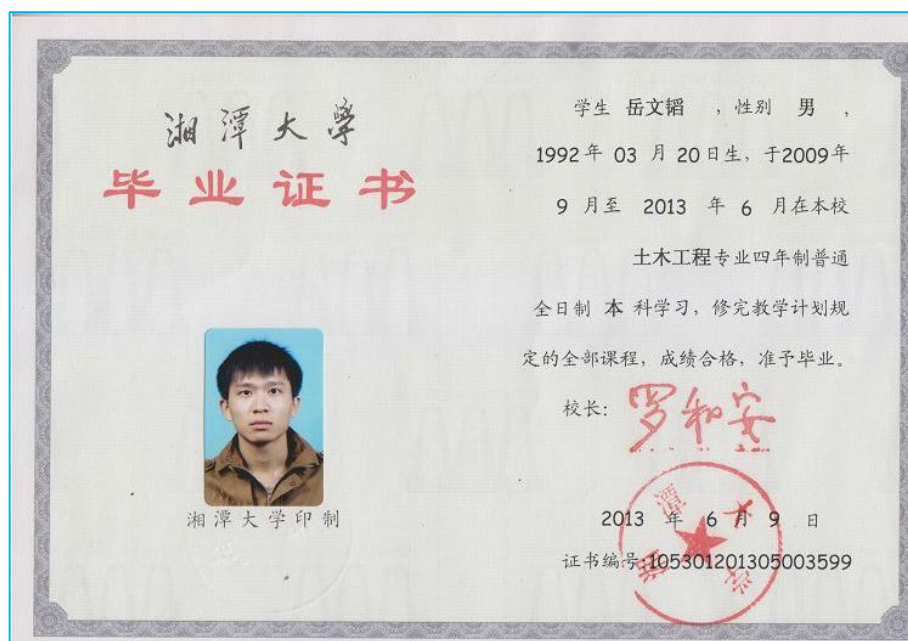 湘潭大學
毕业证书
湘潭大学印制
学生 岳文韬 ，性别 男 ，
1992年 03 月 20日生，于2009年
9 月至 2013 年 6 月在本校
土木工程专业四年制普通
全日制 本 科学习，修完教学计划规
定的全部课程，成绩合格，准予毕业。
校长：罗和安
湘潭大学
2013 年 6 月 9 日
证书编号:105301201305003599